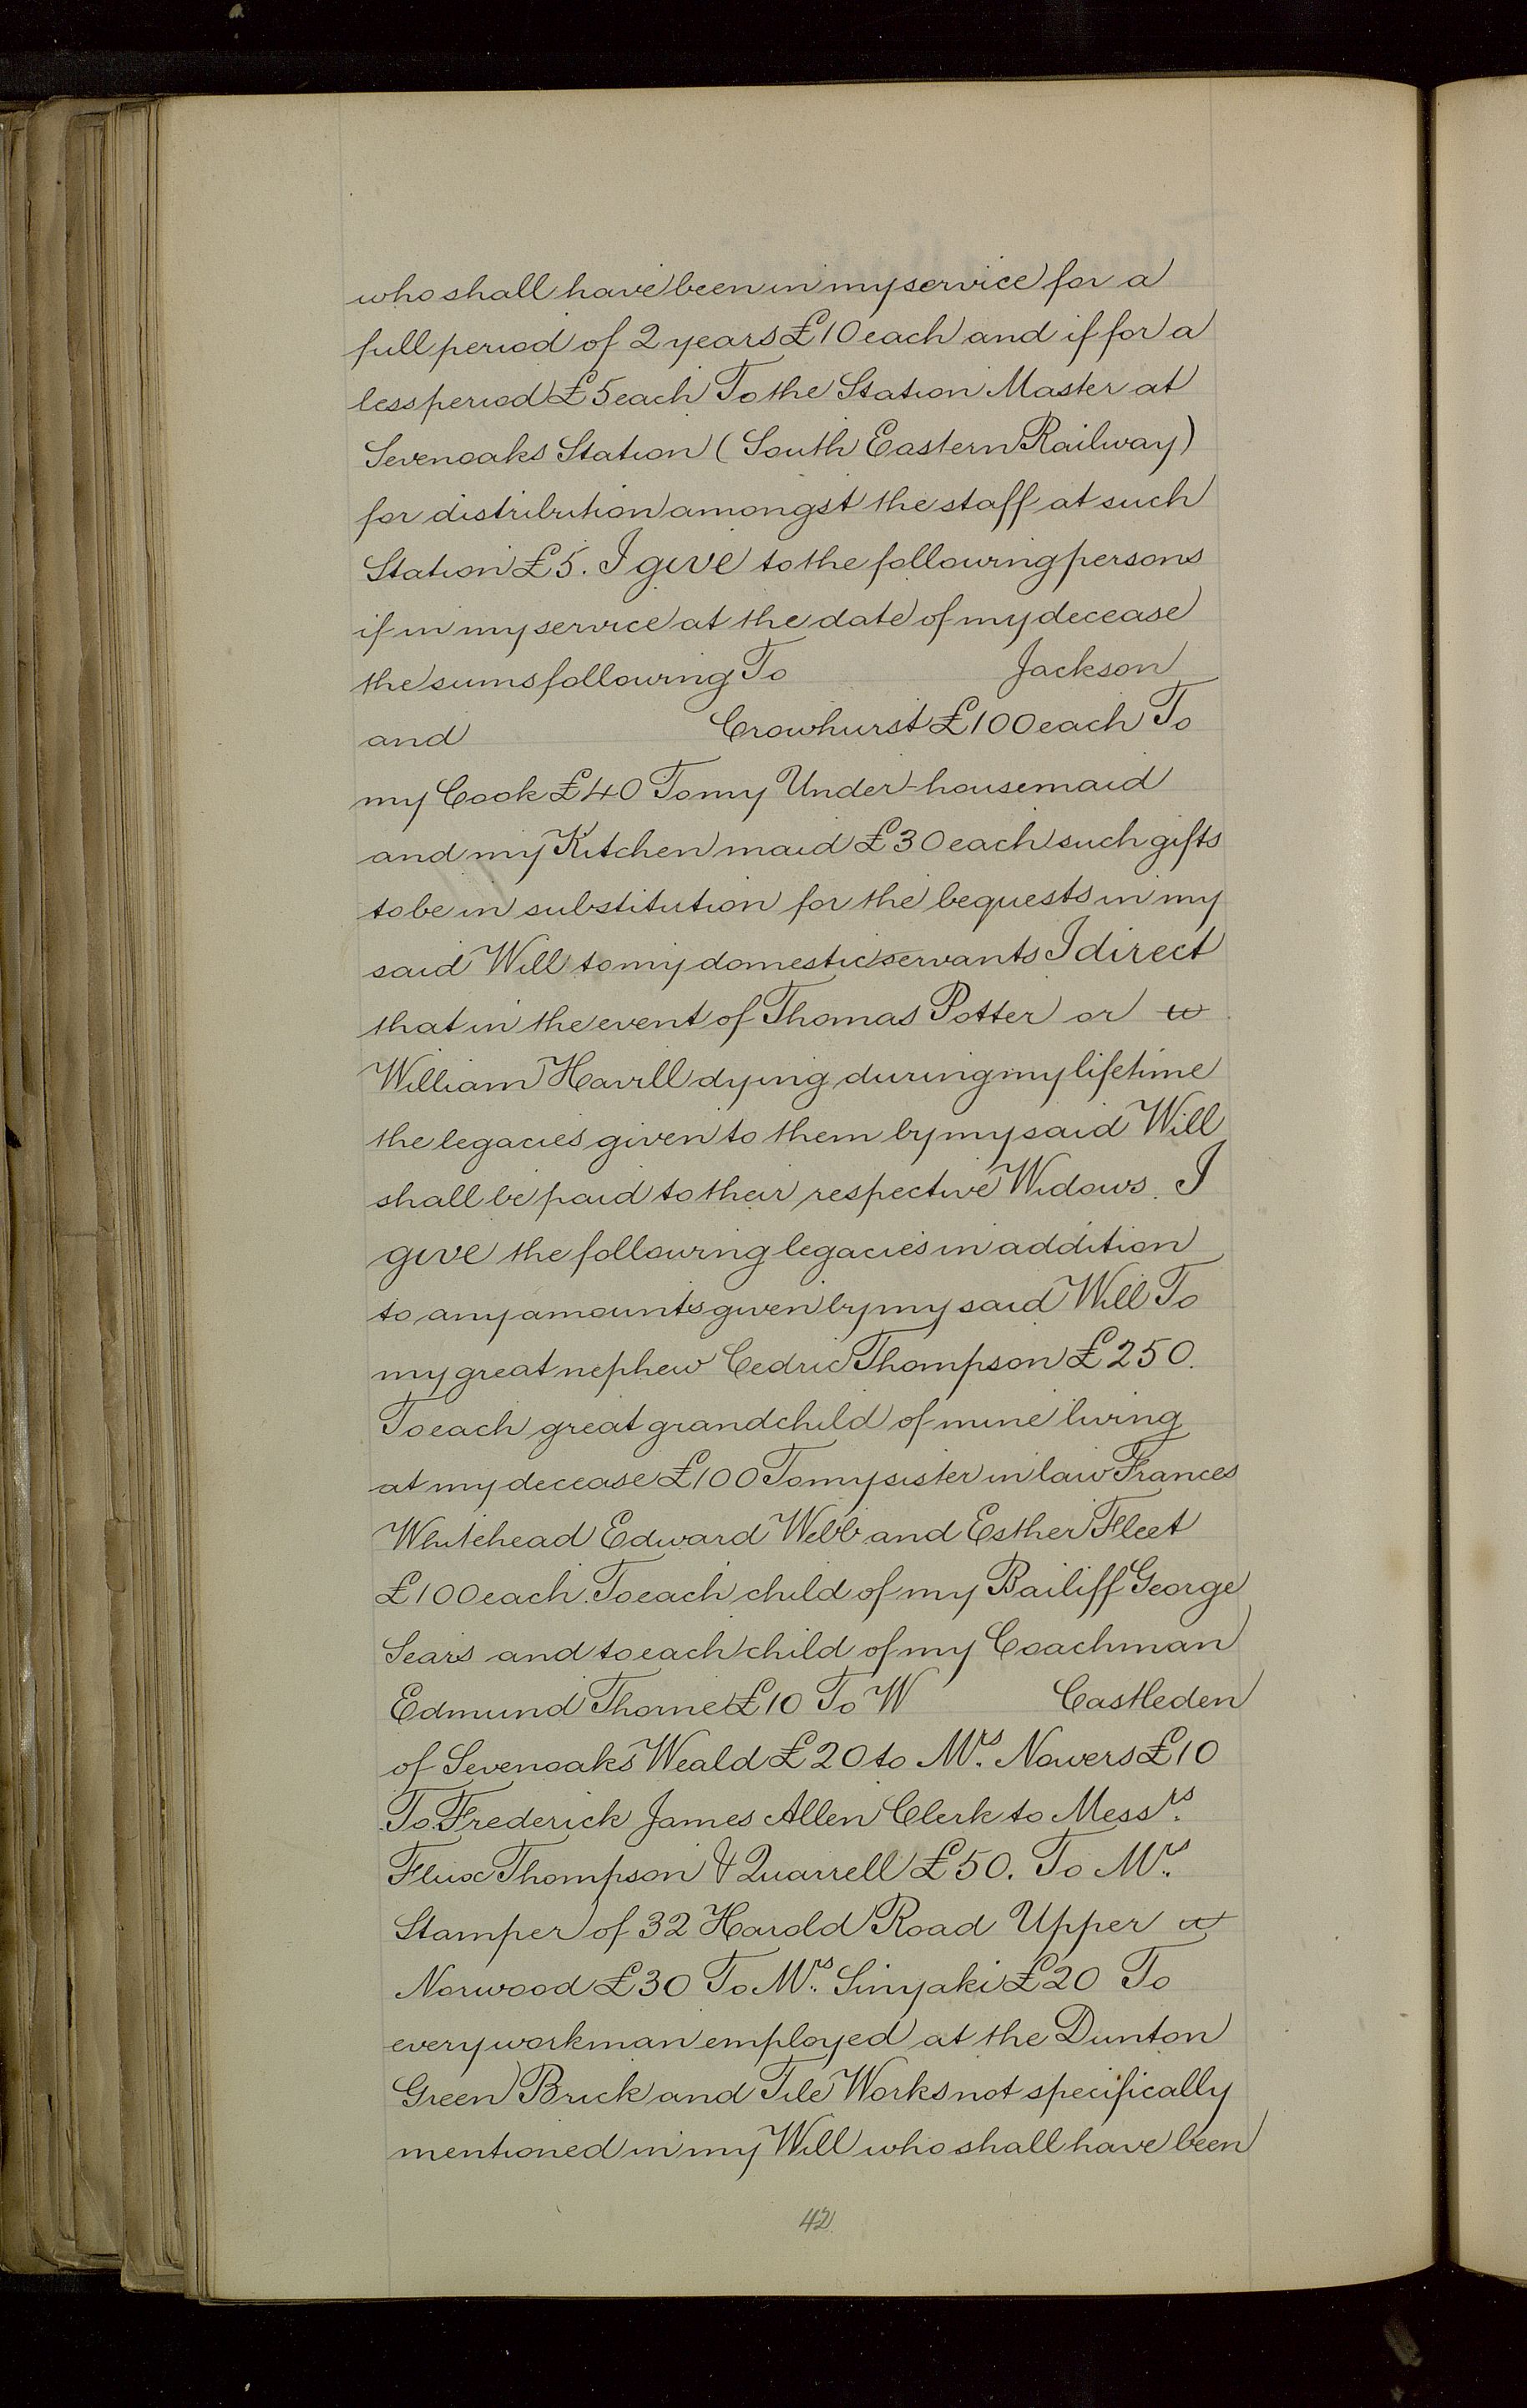 who shall have been in my service for a
full period of 2 years £10 each and if for a
less period £5 each To the Station Master at
Sevenoaks Station (South Eastern Railway)
for distribution amongst the staff at such
Station £5. I give to the following persons
if in my service at the date of my decease
the sums following To Jackson
and Crowhurst £100 each To
my Cook £40 To my Under-housemaid
and my Kitchen maid £30 each such gifts
to be in substitution for the bequests in my
said Will to my domestic servants I direct
that in the event of Thomas Potter or
William Havill dying during my lifetime
the legacies given to them by my said Will
shall be paid to their respective Widows. I
give the following legacies in addition
to any amounts given by my said Will To
my great nephew Cedric Thompson £250.
To each great grandchild of mine living
at my decease £100 To my sister in law Frances
Whitehead Edward Webb and Esther Fleet
£100 each. To each child of my Bailiff George
Sears and to each child of my Coachman
Edmund Thorne £10 To W Castleden
of Sevenoaks Weald £20 to Mrs. Nowers £10
To Frederick James Allen Clerk to Messrs.
Flux Thompson & Quarrell £50. To Mrs.
Stamper of 32 Harold Road Upper
Norwood £30 To Mrs. Sinyaki £20 To
every workman employed at the Dunton
Green Brick and Tile Works not specifically
mentioned in my Will who shall have been
42